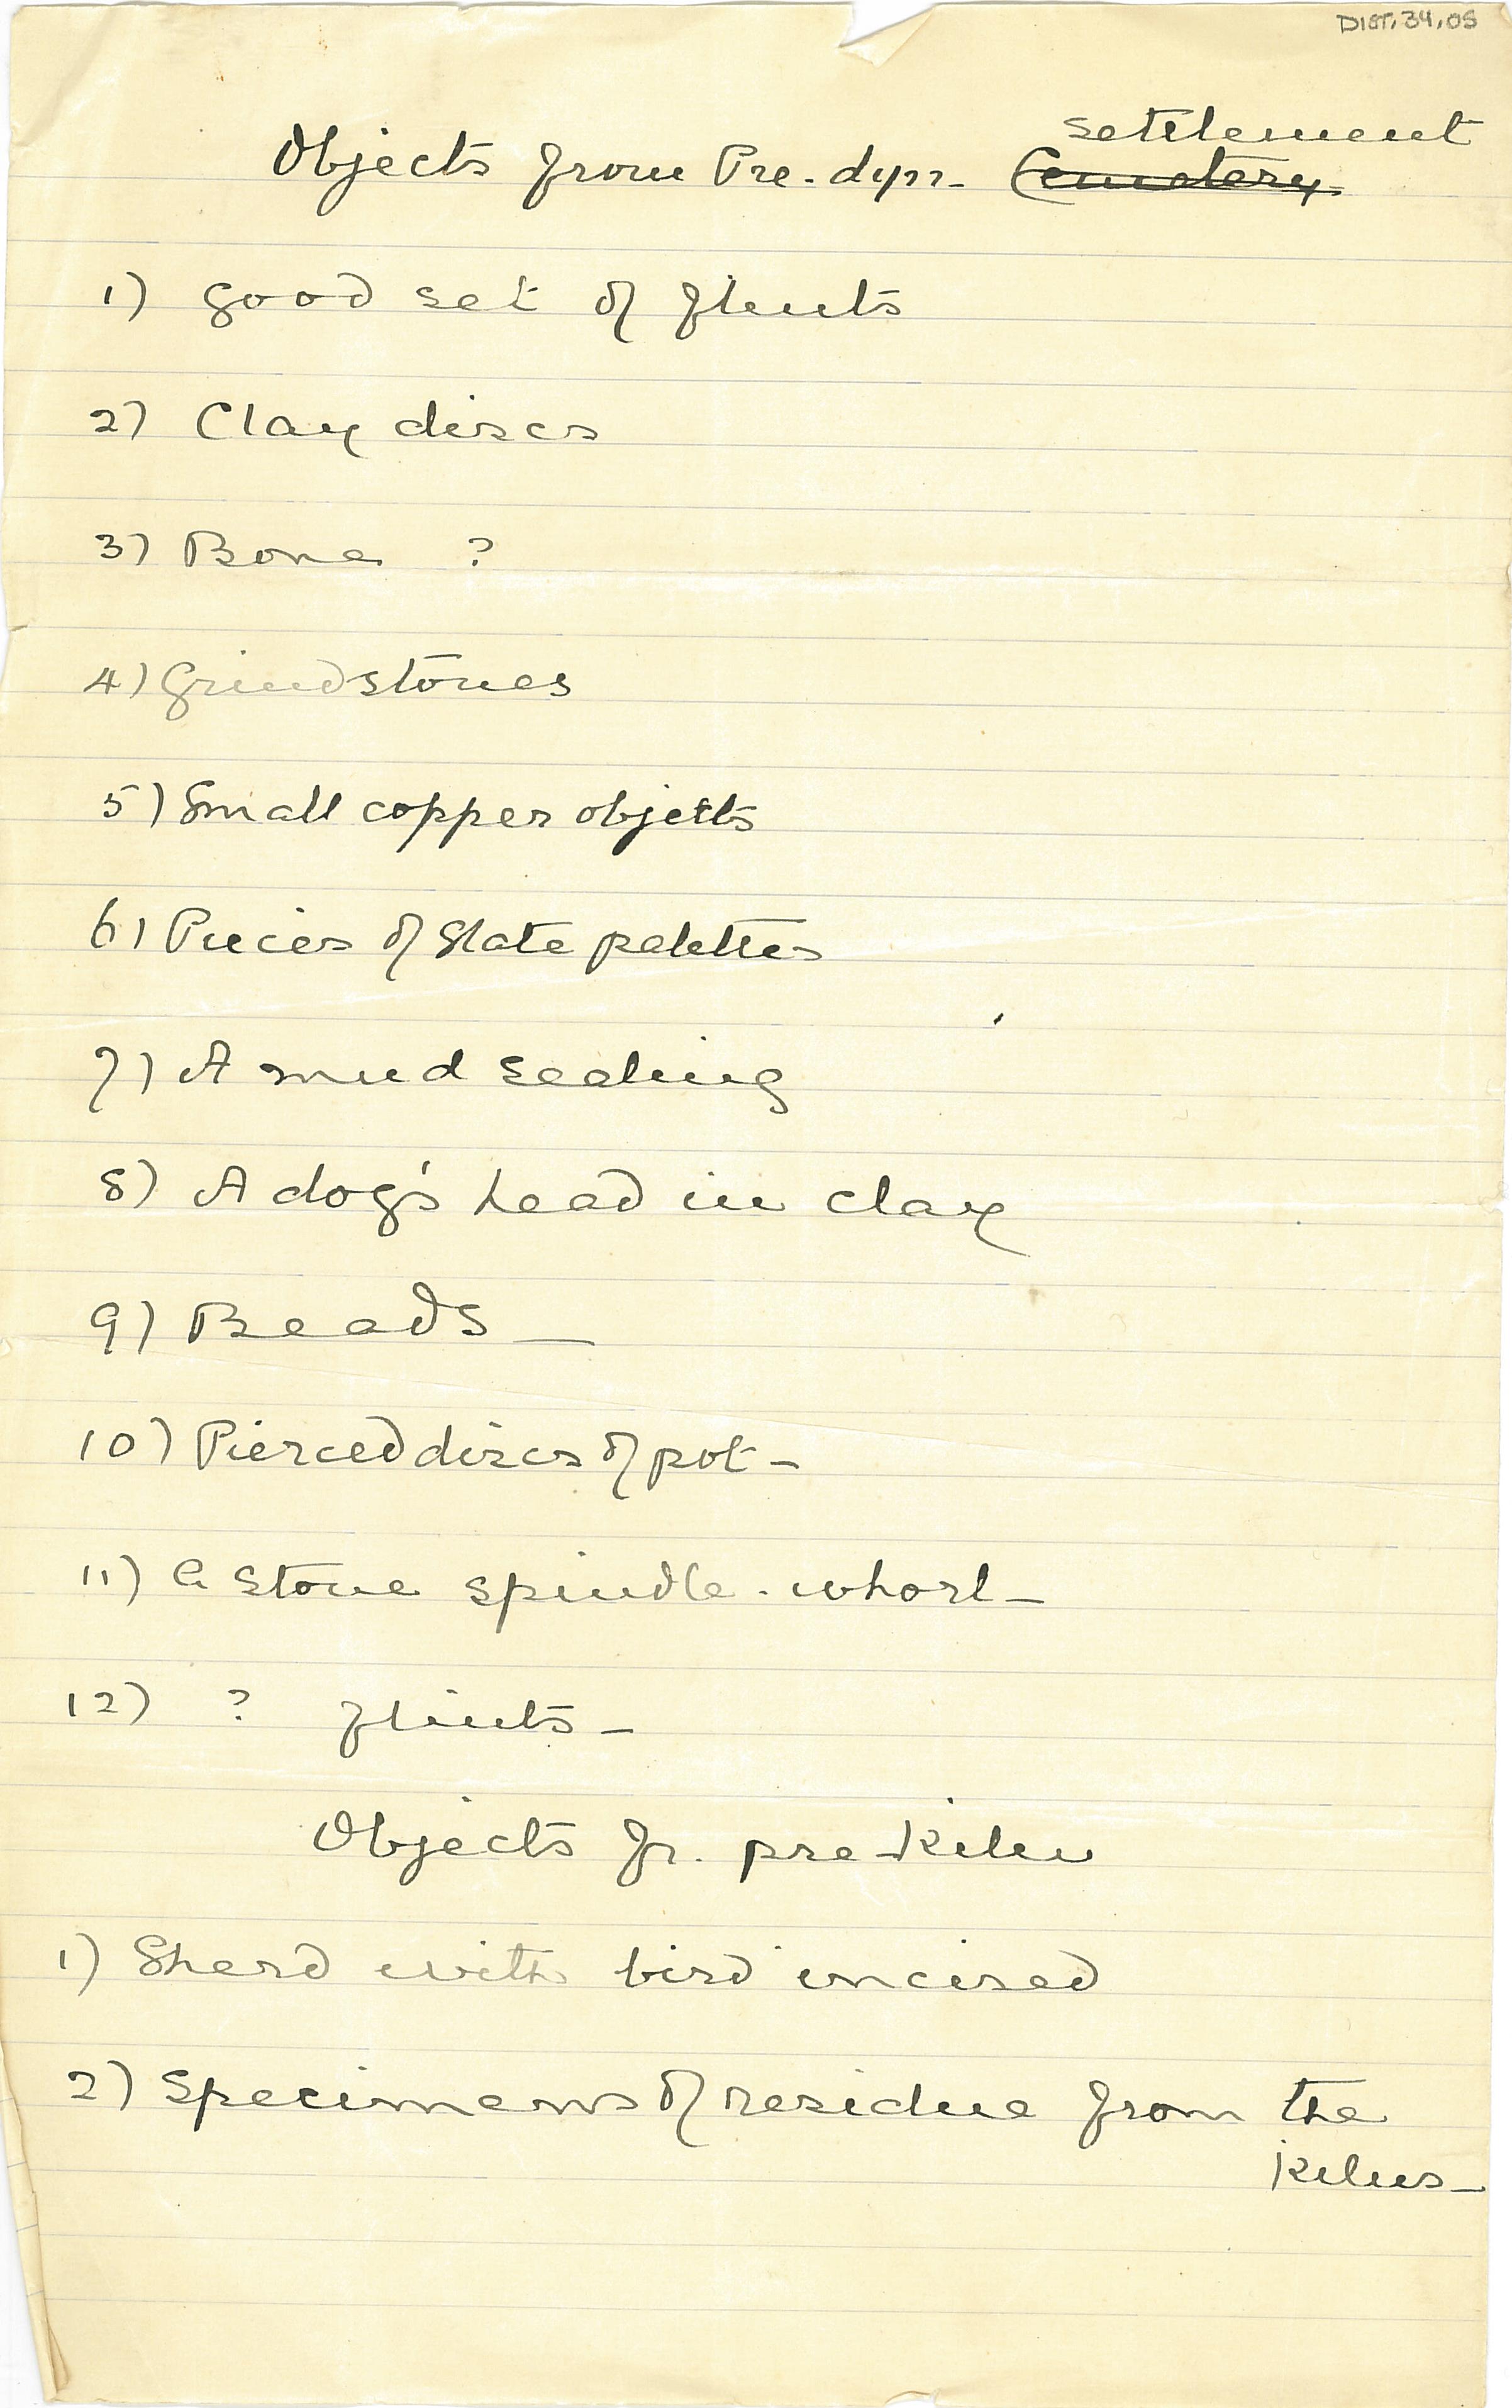 DIST.34.05
settlement
Objects from Pre-dyn- Cemetery
1) good set of flints
2) Clay discs
3) Bone ?
4) Grindstones
5) Small copper objects
6) Pieces of Slate palettes
7) A mud sealing
8) A dog's head in clay
9) Beads -
10) Pierced discs of pot -
11) A stone spindle-whorl -
12) ? flints -
Objects fr. pre-kiln
1) Sherd with bird incised
2) Specimens of residue from the
kilns -